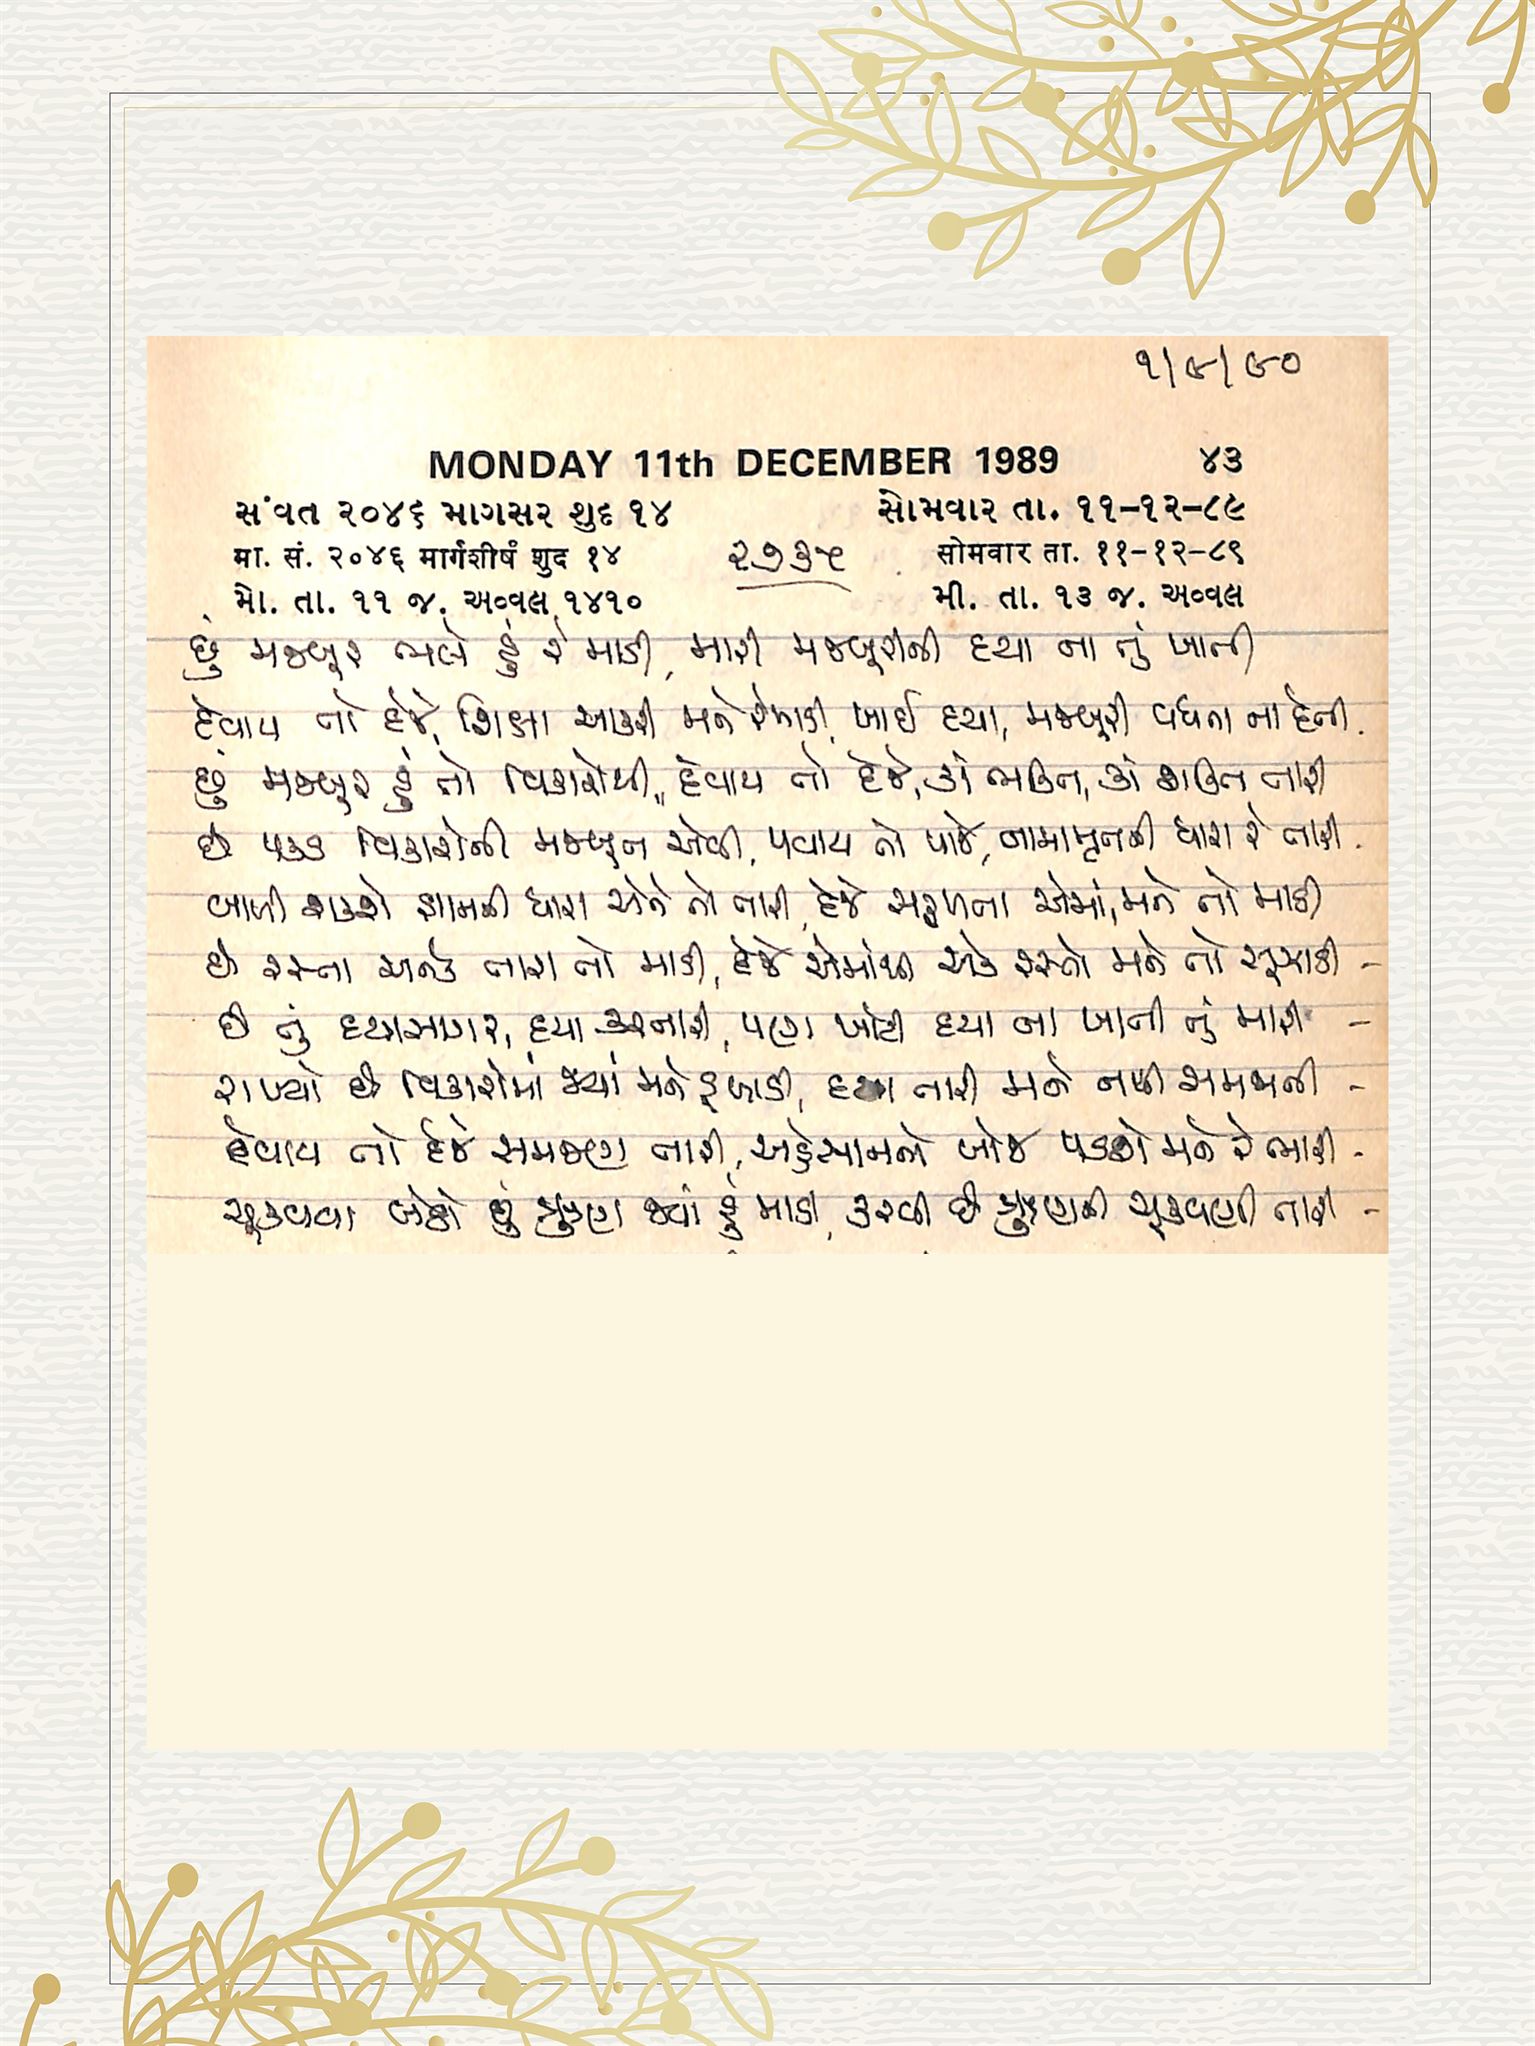 ૧/૯/૯૦
MONDAY 11th DECEMBER 1989 ૪૩
સંવત ૨૦૪૬ માગસર શુદ ૧૪ સોમવાર તા. ૧૧-૧૨-૮૯
मा. सं. २०४६ मार्गशीर्ष शुद १४ ૨૭૩૫ सोमवार ता. ११-१२-८९
મો. તા. ૧૧ જ. અવ્વલ ૧૪૧૦ મી. તા. ૧૩ જ. અવ્વલ
છું મજબૂર ભલે હું રે માડી, મારી મજબૂરીની દયા ના તું ખાતી
દેવાય તો દેજે, શિક્ષા આકરી મને રે માડી, ખાઈ દયા, મજબૂરી વધવા ના દેતી.
છું મજબૂર હું તો વિકારોથી, દેવાય તો દેજે, કાં ભક્તિ, કાં શક્તિ તારી
છે પકડ વિકારોની મજબૂત એવી, પવાય તો પાજે, નામામૃતની ધારા રે તારી.
બાળી શકશે જ્ઞાનની ધારા એને તો તારી, દેજે સફળતા એમાં, મને તો માડી
છે રસ્તા અનેક તારા તો માડી, દેજે એમાંથી એક રસ્તો મને તો સુઝાડી -
છે તું દયાસાગર, દયા કરનારી, પણ ખોટી દયા ના ખાતી તું મારી -
રાખ્યો છે વિકારોમાં જ્યાં મને ડુબાડી, દયા તારી મને નથી સમજાતી -
દેવાય તો દેજે સમજણ તારી, અહેસાનનો બોજ પડશે મને રે ભારી -
ચૂકવવા બેઠો છું ઋણ જ્યાં હું માડી, કરવી છે ઋણની ચૂકવણી તારી -